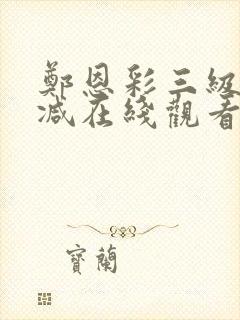 鄭恩彩三級
減在綫觀看
寶蘭